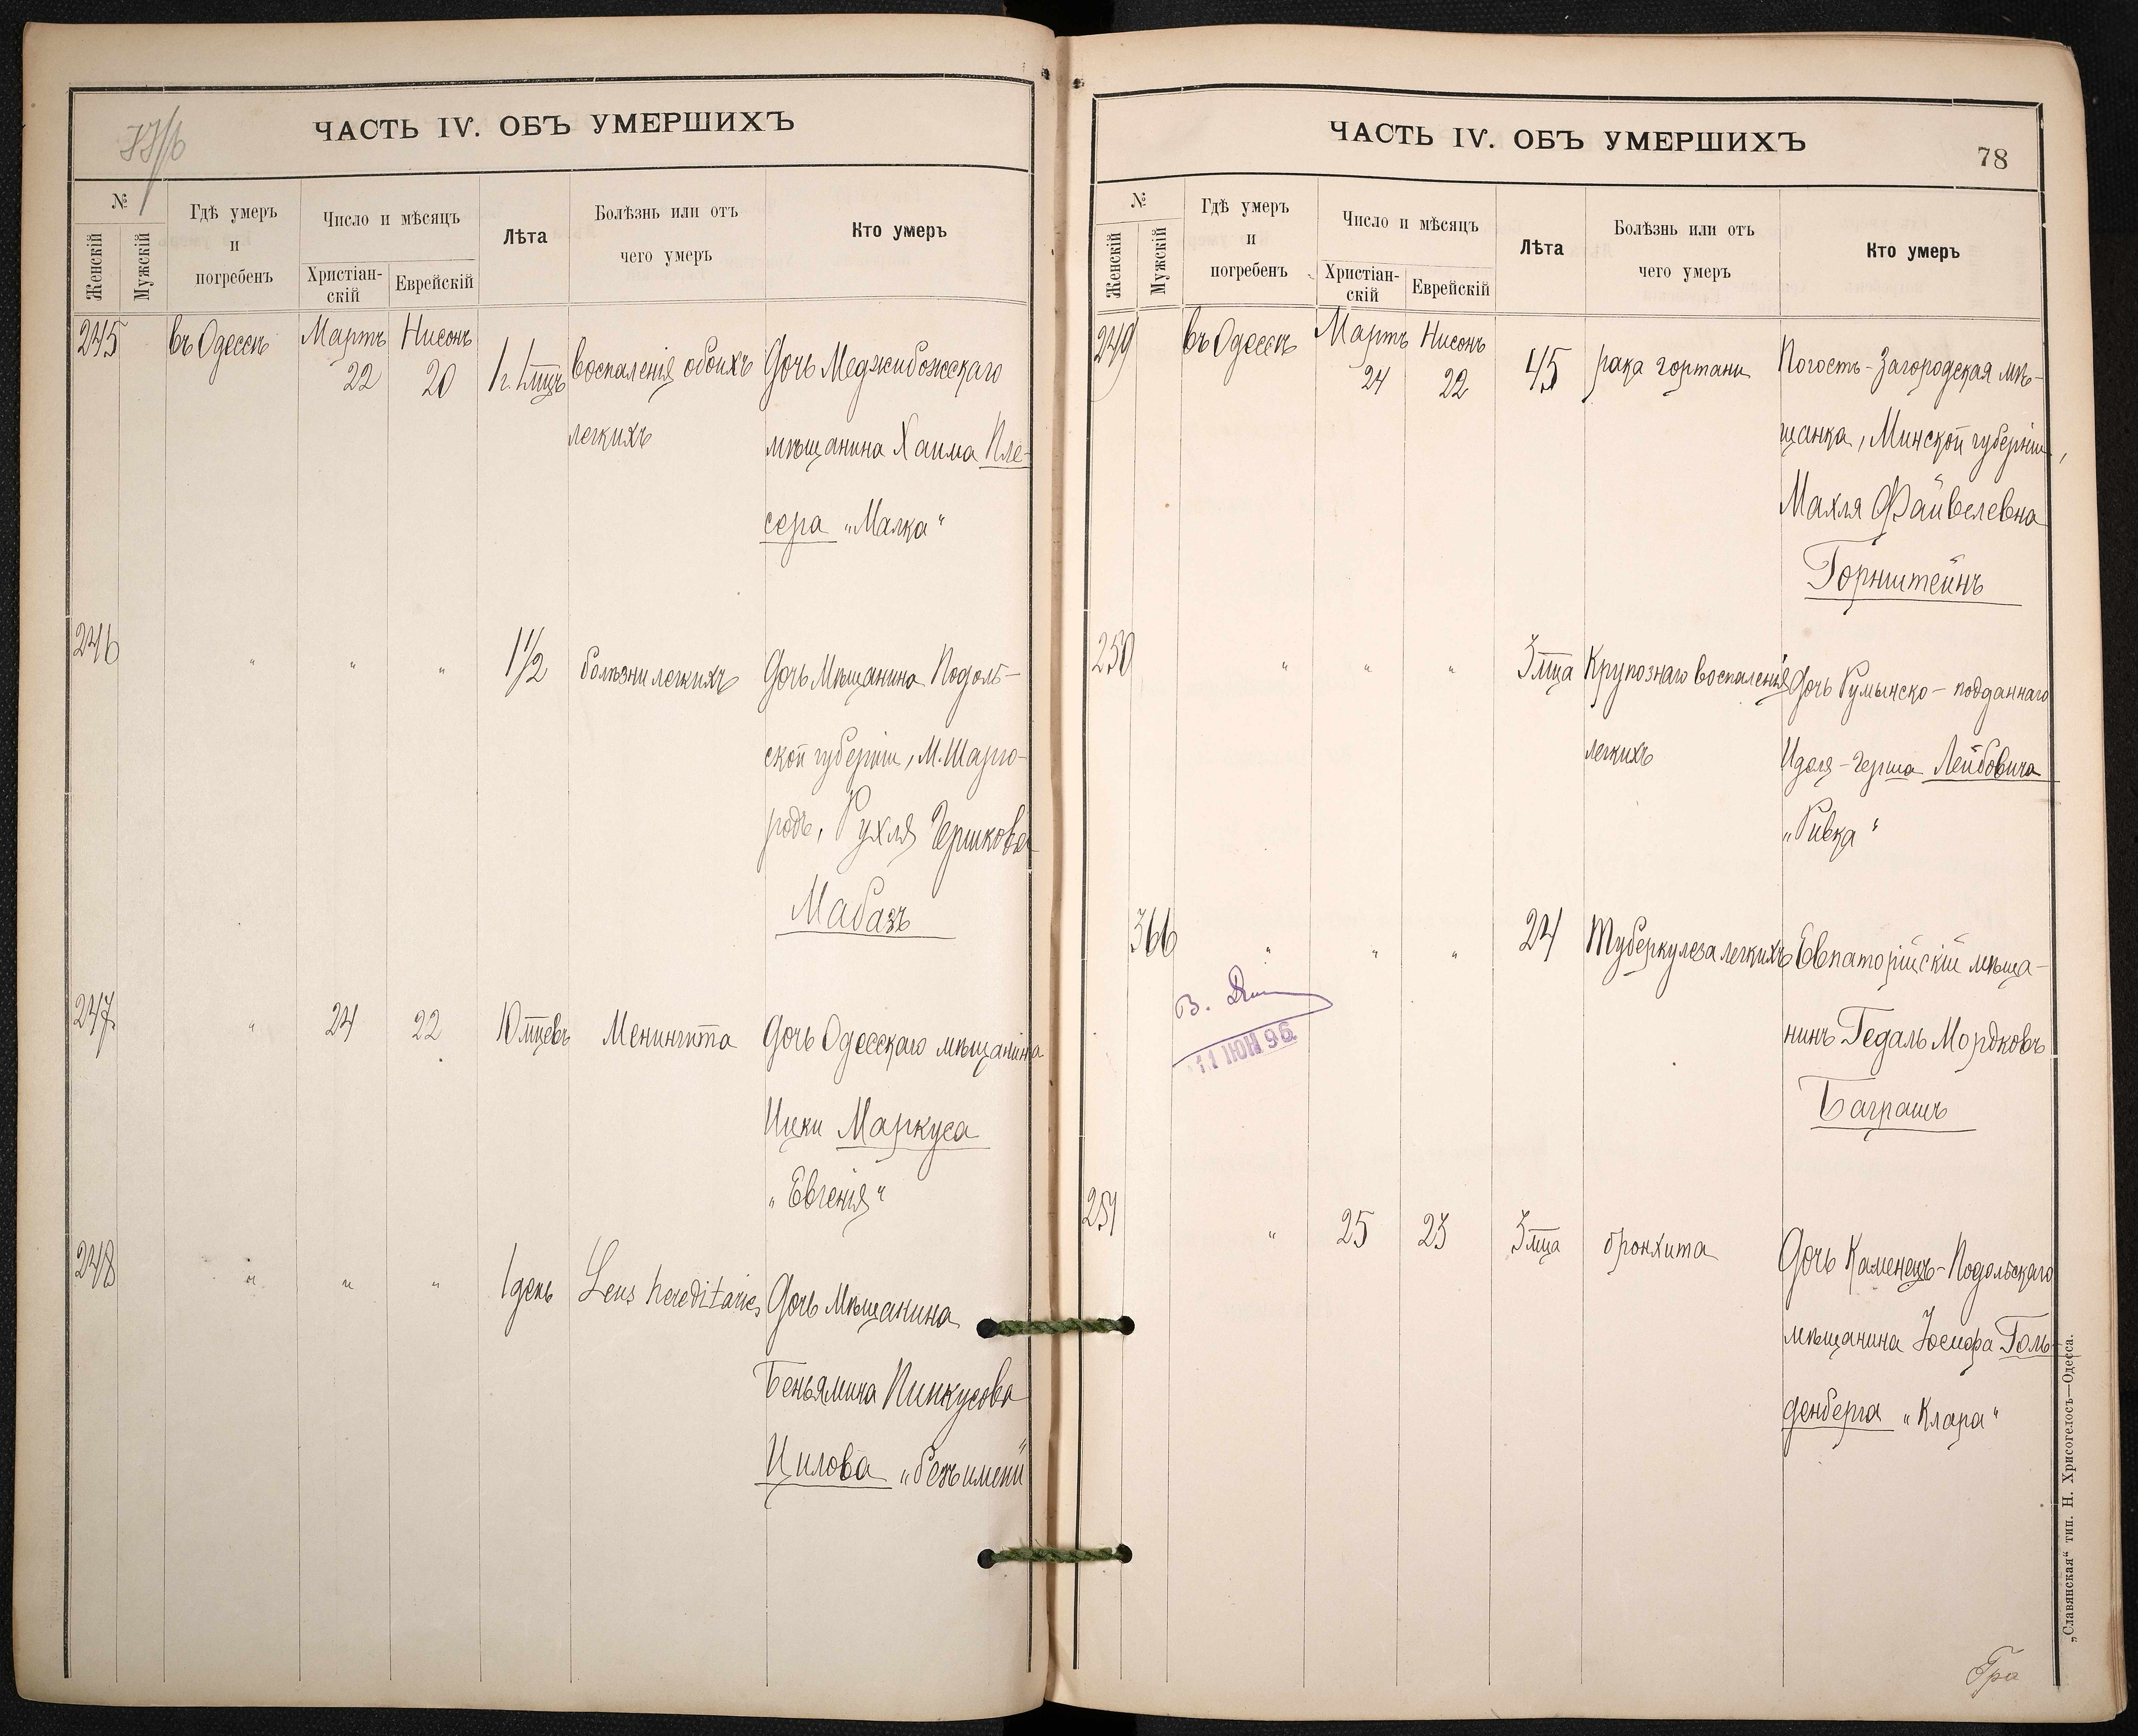 77/б
ЧАСТЬ IV. ОБЪ УМЕРШИХЪ
№
Женскій
Мужскій
Гдѣ умеръ
и
погребенъ
Число и мѣсяцъ
Христіан-
скій
Еврейскій
Лѣта
Болѣзнь или отъ
чего умеръ
Кто умеръ
245 въ Одессѣ Мартъ 22 Нисонъ 20 1 г. 1 мцъ воспаленія обоихъ Дочь Меджибожсскаго
легкихъ мѣщанина Хаима Пле-
сера „Малка“
246 " " " 1½ болѣзни легкихъ Дочь Мѣщанина Подоль-
ской губерніи, М. Шарго-
родъ, Рухля Гершкова
Мабазъ
247 " 24 22 10 мцевъ Менингита Дочь Одесскаго мѣщанина
Ицки Маркуса
„Евгенія“
248 " " " 1 день Lues hereditaries Дочь Мѣщанина
Беньямина Пинкусова
Цилова „безъ имени“
ЧАСТЬ IV. ОБЪ УМЕРШИХЪ
78
№
Женскій
Мужскій
Гдѣ умеръ
и
погребенъ
Число и мѣсяцъ
Христіан-
скій
Еврейскій
Лѣта
Болѣзнь или отъ
чего умеръ
Кто умеръ
249 въ Одессѣ Мартъ 24 Нисонъ 22 45 рака гортани Погостъ-Загородская мѣ-
щанка, Минской губерніи,
Махля Файвелевна
Горнштейнъ
250 " " " 3 мца Крупознаго воспаленія Дочь Румынско-подданнаго
легкихъ Иделя-Герша Лейбовича
„Ривка“
366 " " " 24 Туберкулеза легкихъ Евпаторійскій мѣща-
нинъ Гедаль Мордковъ
Баграшъ
11 ИЮН 96
251 " 25 23 3 мца бронхита Дочь Каменецъ-Подольскаго
мѣщанина Іосифа Голь-
денберга „Клара“
„Славянская“ тип. Н. Хрисогелосъ—Одесса.